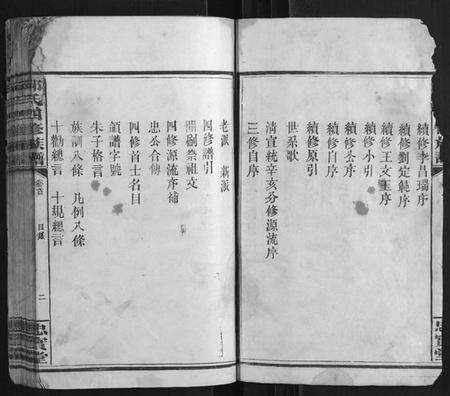 續修李昌瑞序
續修劉定範序
續修王文玉序
續修小引
續修公序
續修自序
續修原引
世系歌
清宣統辛亥分修源流序
三修自序
老派 新派
四修譜引
開剮祭祖文
四修源流序補
忠公合傳
四修首士名目
領譜字號
朱子格言
族訓八條 凡例八條
十勸總言 十規總言
氏四修族譜 卷首 目錄 二 忠實堂